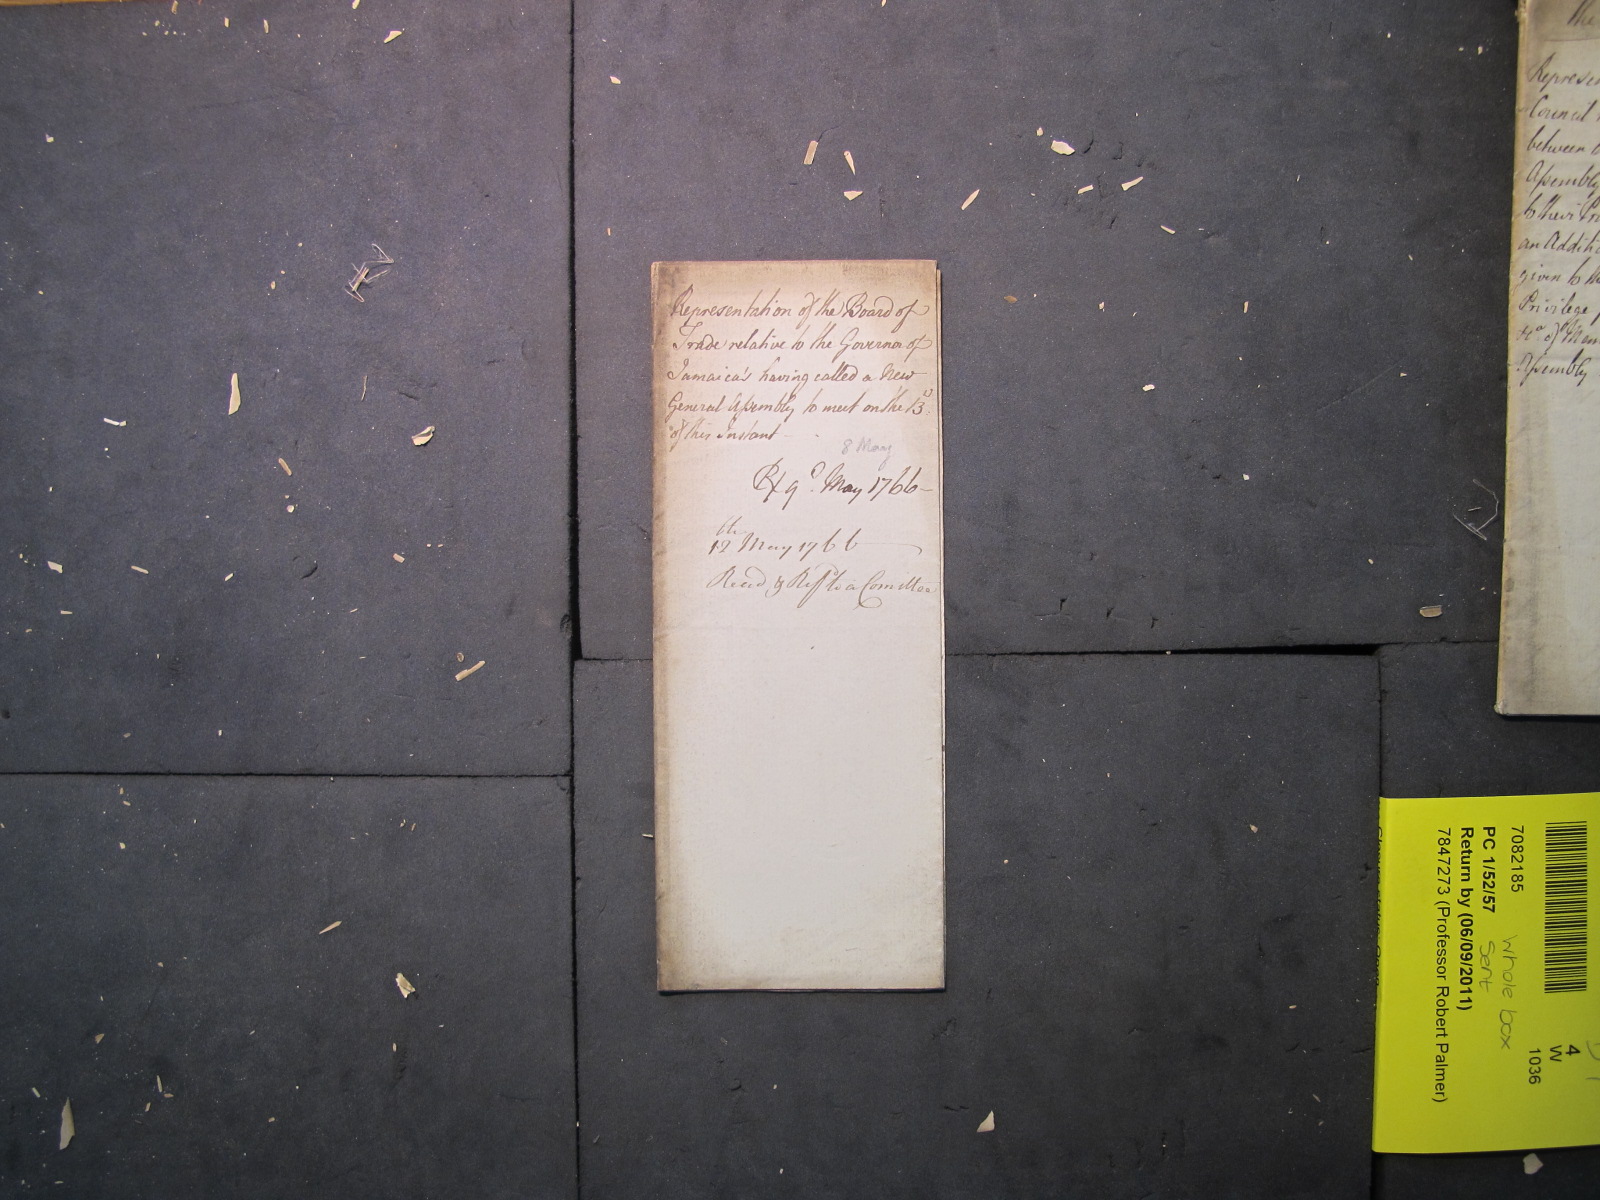 Representation of the Board of
Trade relative to the Governor of
Jamaica's having called a New
General Assembly to meet on the 13.th
of this Instant
8 May
Rx 9.th May 1766
12th May 1766
Read & Refd. to a Comittee
the
Represen
Council
between
Assembly
to their Pri
an Additi
given to th
Privilege
of Mem
Assembly
7082185
PC 1/52/57
Return by (06/09/2011)
7847273 (Professor Robert Palmer)
whole box
sent
4
W
1036